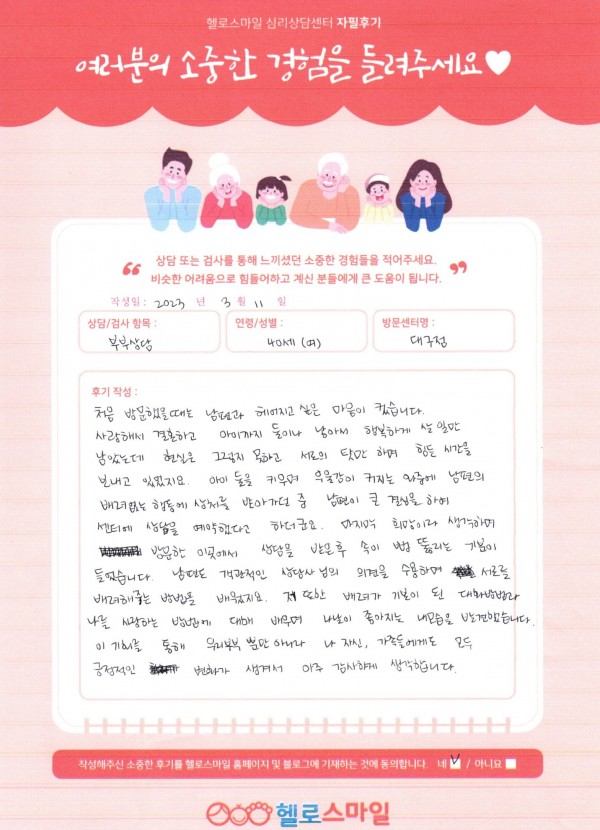 헬로스마일 심리상담센터 자필후기
여러분의 소중한 경험을 들려주세요♥
상담 또는 검사를 통해 느끼셨던 소중한 경험들을 적어주세요.
비슷한 어려움으로 힘들어하고 계신 분들에게 큰 도움이 됩니다.
작성일 : 2023 년 3 월 11 일
상담/검사 항목 :
부부상담
연령/성별 :
40세 (여)
방문센터명 :
대구점
후기 작성 :
처음 방문했을때는 남편과 헤어지고 싶은 마음이 컸습니다.
사랑해서 결혼하고 아이까지 둘이나 낳아서 행복하게 살 일만
남았는데 현실은 그렇지 못하고 서로의 탓만 하며 힘든 시간을
보내고 있었지요. 아이 둘을 키우며 우울감이 커지는 와중에 남편의
배려없는 행동에 상처를 받아가던 중 남편이 큰 결심을 하여
센터에 상담을 예약했다고 하더군요. 마지막 희망이라 생각하며
방문한 이곳에서 상담을 받은후 속이 뻥 뚫리는 기분이
들었습니다. 남편도 객관적인 상담사님의 의견을 수용하며 서로를
배려해주는 방법을 배웠지요. 저 또한 배려가 기본이 된 대화방법과
나를 사랑하는 방법에 대해 배우며 나날이 좋아지는 내모습을 발견했습니다.
이 기회를 통해 우리부부 뿐만 아니라 나 자신, 가족들에게도 모두
긍정적인 변화가 생겨서 아주 감사하게 생각합니다.
작성해주신 소중한 후기를 헬로스마일 홈페이지 및 블로그에 기재하는 것에 동의합니다. 네 V / 아니요
헬로스마일